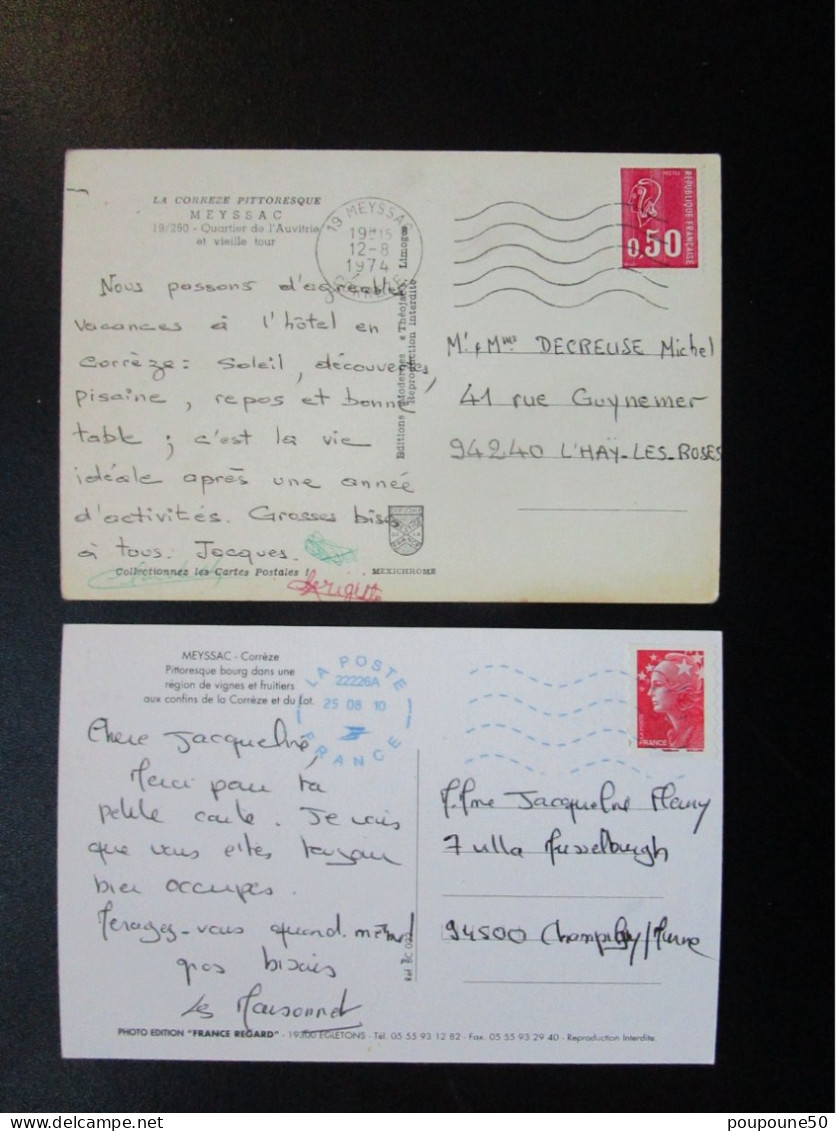 LA CORREZE PITTORESQUE
MEYSSAC
19/260 - Quartier de l'Auvitrie
et vieille tour
19 MEYSSAC
19H15
12-8
1974
CORREZE
POSTES
0,50
REPUBLIQUE FRANÇAISE
Nous passons d'agréables
vacances à l'hôtel en
Corrèze : Soleil, découvertes,
pisaine, repos et bonne
table ; c'est la vie
idéale après une année
d'activités. Grosses bises
à tous. Jacques.
Brigitte
Collectionnez les Cartes Postales !
MEXICHROME
Editions Modernes « Théojac », Limoges
Reproduction interdite
Mr & Mme DECREUSE Michel
41 rue Guynemer
94240 L'HAŸ-LES-ROSES
MEYSSAC - Corrèze
Pittoresque bourg dans une
région de vignes et fruitiers
aux confins de la Corrèze et du Lot.
LA POSTE
22226A
25 08 10
FRANCE
LA POSTE
FRANCE
Chere Jacqueline,
Merci pour ta
petite carte. Je vois
que vous etes toujours
bien occupés.
Menagez-vous quand même
gros bisous
Les Maisonnet
Réf. BC
Mme Jacqueline Fleury
7 villa Musselburgh
94500 Champigny/Marne
PHOTO EDITION "FRANCE REGARD" - 19300 EGLETONS - Tél. 05 55 93 12 82 - Fax. 05 55 93 29 40 - Reproduction Interdite
poupoune50